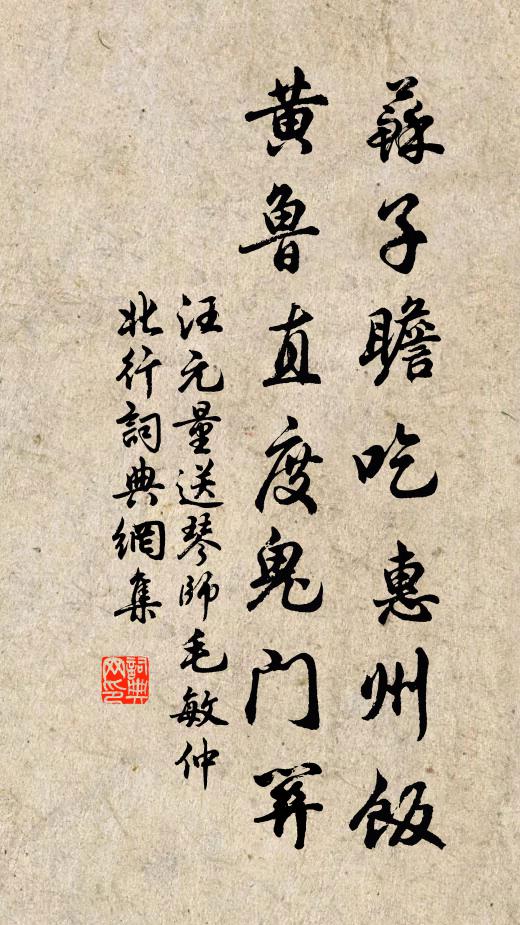 蘇子瞻吃惠州飯
黄魯直度鬼門關
汪元量送琴師毛敏仲
北行詞典網集
詞典网印